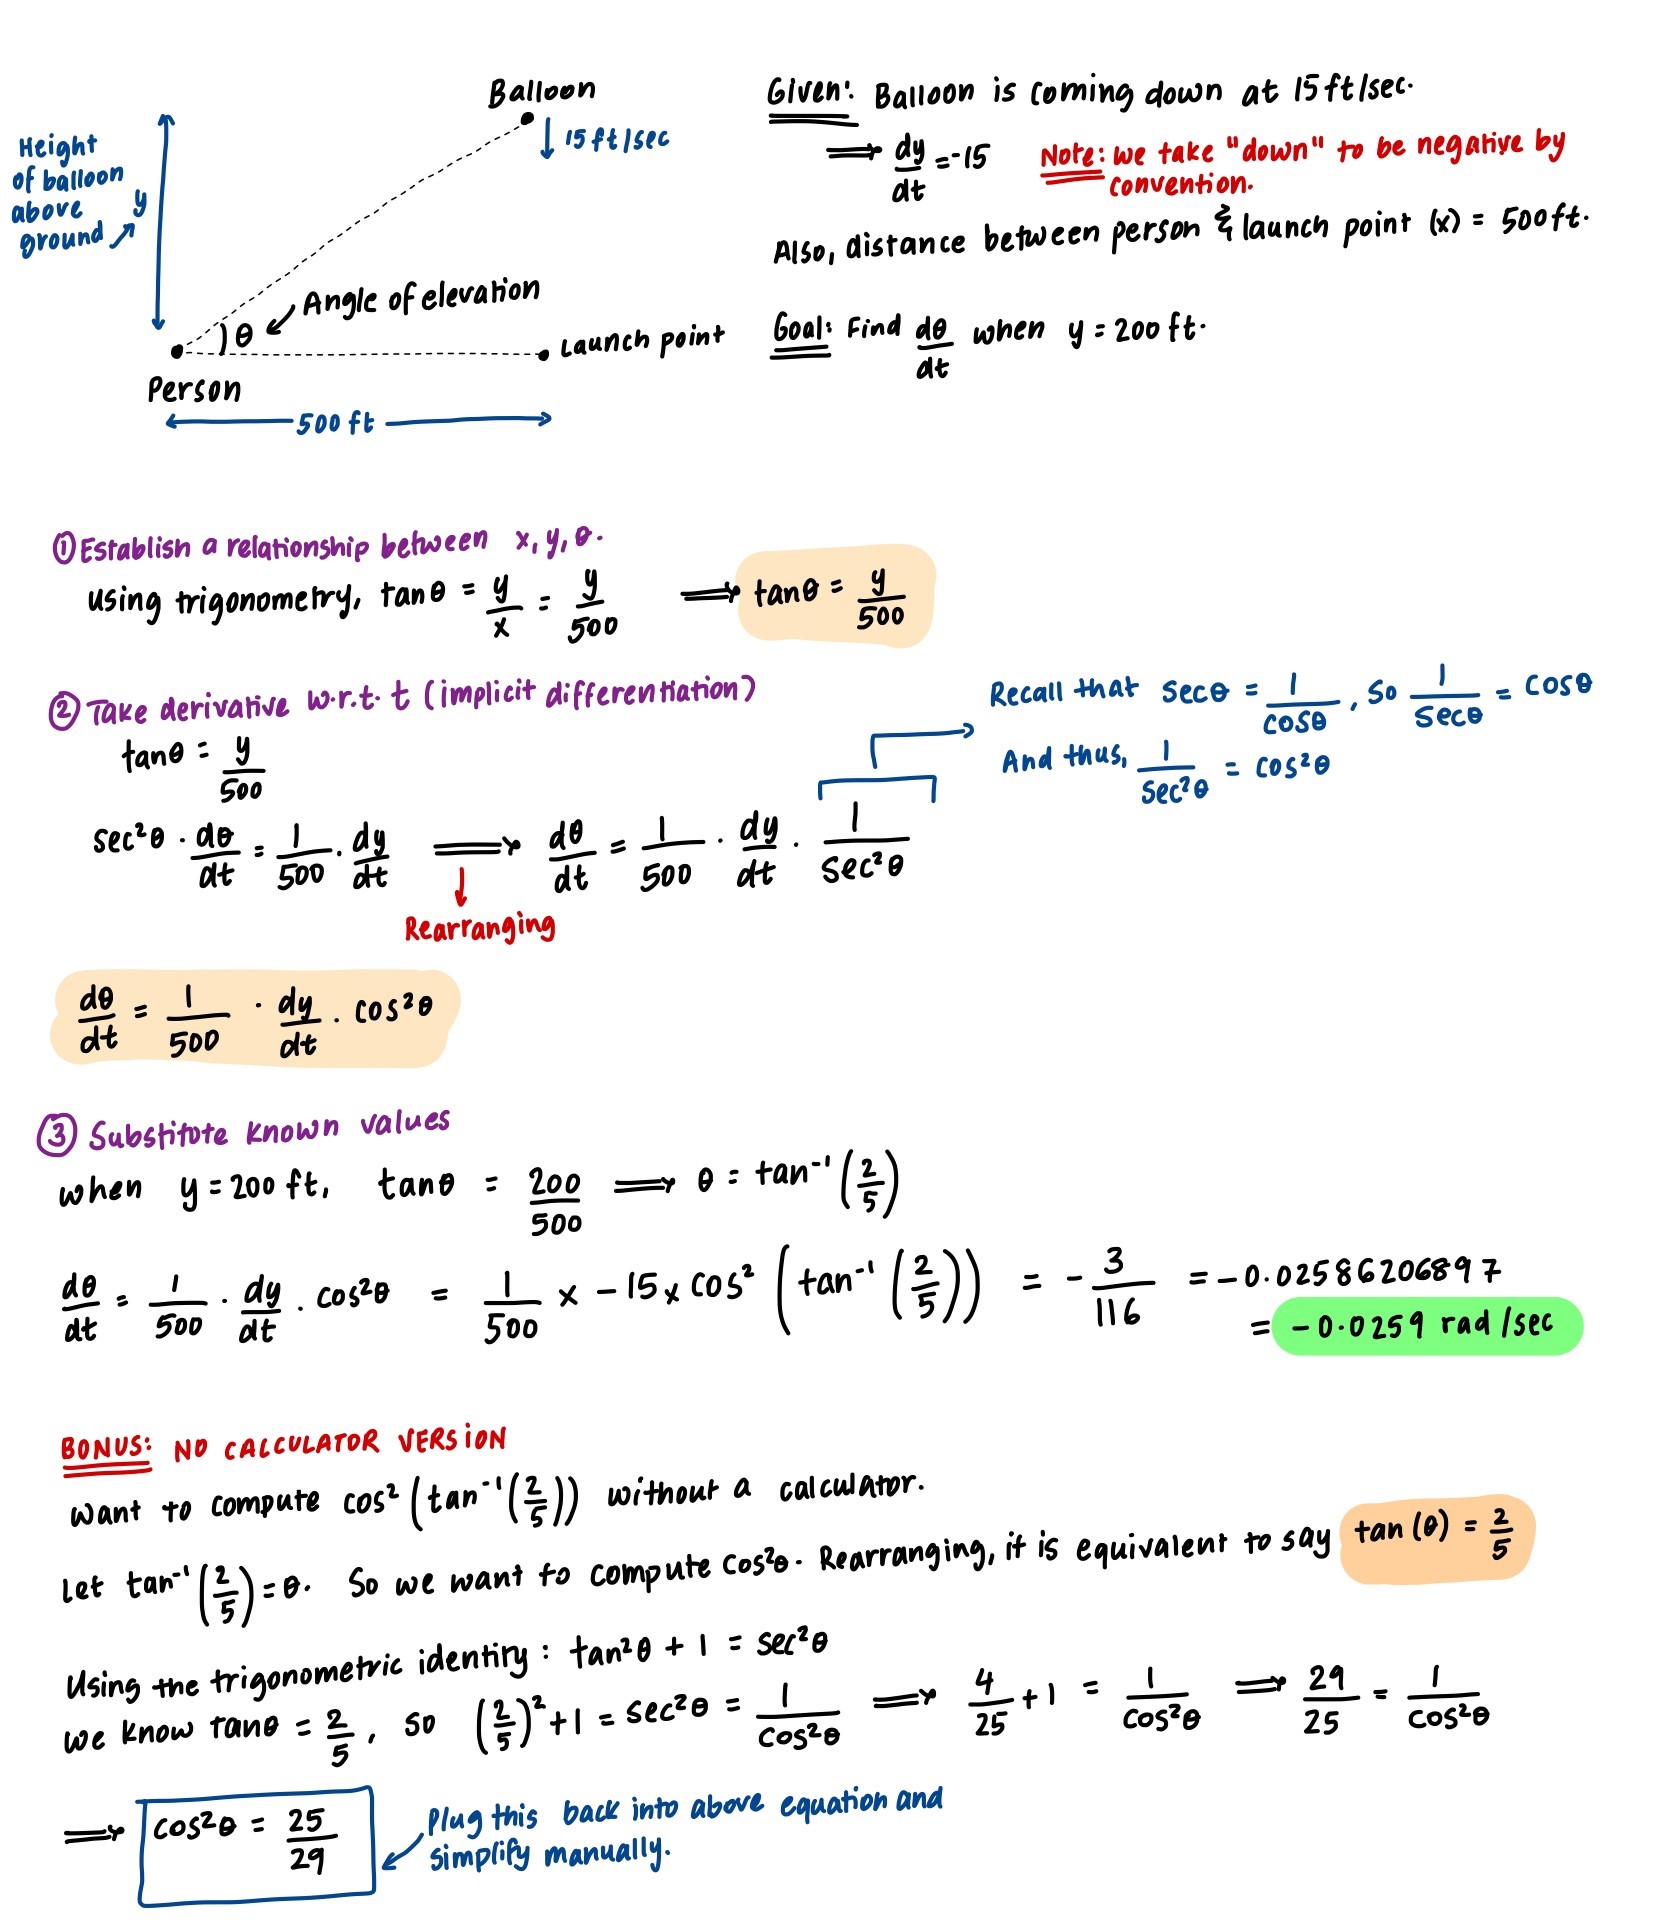 Balloon
15 ft/sec
Height
of balloon
above
ground
y
Angle of elevation
θ
Launch point
Person
500 ft
Given: Balloon is coming down at 15 ft/sec.
⟹ dy/dt = -15
Note: we take "down" to be negative by
convention.
Also, distance between person & launch point (x) = 500 ft.
Goal: Find dθ/dt when y = 200 ft.
① Establish a relationship between x, y, θ.
Using trigonometry, tanθ = y/x = y/500 ⟹ tanθ = y/500
② Take derivative w.r.t. t (implicit differentiation)
tanθ = y/500
sec²θ · dθ/dt = 1/500 · dy/dt ⟹ dθ/dt = 1/500 · dy/dt · 1/sec²θ
Rearranging
Recall that secθ = 1/cosθ, so 1/secθ = cosθ
And thus, 1/sec²θ = cos²θ
dθ/dt = 1/500 · dy/dt · cos²θ
③ Substitute known values
when y = 200 ft, tanθ = 200/500 ⟹ θ = tan⁻¹(2/5)
dθ/dt = 1/500 · dy/dt · cos²θ = 1/500 × -15 × cos²(tan⁻¹(2/5)) = -3/116 = -0.02586206897
= -0.0259 rad/sec
BONUS: NO CALCULATOR VERSION
Want to compute cos²(tan⁻¹(2/5)) without a calculator.
Let tan⁻¹(2/5) = θ. So we want to compute cos²θ. Rearranging, it is equivalent to say tan(θ) = 2/5
Using the trigonometric identity: tan²θ + 1 = sec²θ
we know tanθ = 2/5, so (2/5)² + 1 = sec²θ = 1/cos²θ ⟹ 4/25 + 1 = 1/cos²θ ⟹ 29/25 = 1/cos²θ
⟹ cos²θ = 25/29
Plug this back into above equation and
simplify manually.